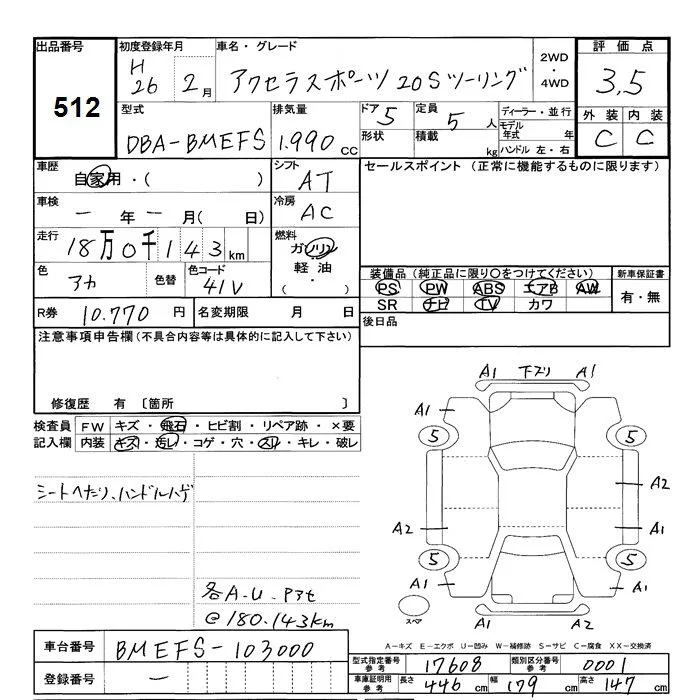 出品番号 初度登録年月 車名・グレード 評価点
512 H26 2月 アクセラスポーツ 20Sツーリング 2WD・4WD 3,5
型式 排気量 ドア 5 定員 5人 ディーラー・並行 外装 内装
DBA-BMEFS 1.990cc 形状 積載 kg モデル年式 年 C C
ハンドル 左・右
車歴 自家用・( ) シフト AT セールスポイント (正常に機能するものに限ります)
車検 ー年ー月(日) 冷房 AC
走行 18万0千143km 燃料 ガソリン
軽油
( ・ )
色 アカ 色替 色コード 41V 装備品 (純正品に限り○をつけてください) 新車保証書
PS PW ABS エアB AW 有・無
R券 10.770円 名変期限 月 日 SR ナビ TV カワ
注意事項申告欄(不具合内容等は具体的に記入して下さい) 後日品
修復歴 有 〔箇所 〕
検査員 FW キズ・飛石・ヒビ割・リペア跡・×要
記入欄 内装 キズ・汚レ・コゲ・穴・スレ・キレ・破レ
シートヘタリ、ハンドルハゲ
各A.U.Pアセ
@180.143km
A1 下スリ A1
A1 A1
5 5
A2
A2 A1
5 5
A1 A1
スペア A1 A2
A-キズ E-エクボ U-凹み W-補修跡 S-サビ C-腐食 XX-交換済
車台番号 BMEFS-103000
型式指定番号参考 17608 類別区分番号参考 0001
登録番号 ー 車庫証明用参考 長さ 446cm 幅 179cm 高さ 147cm